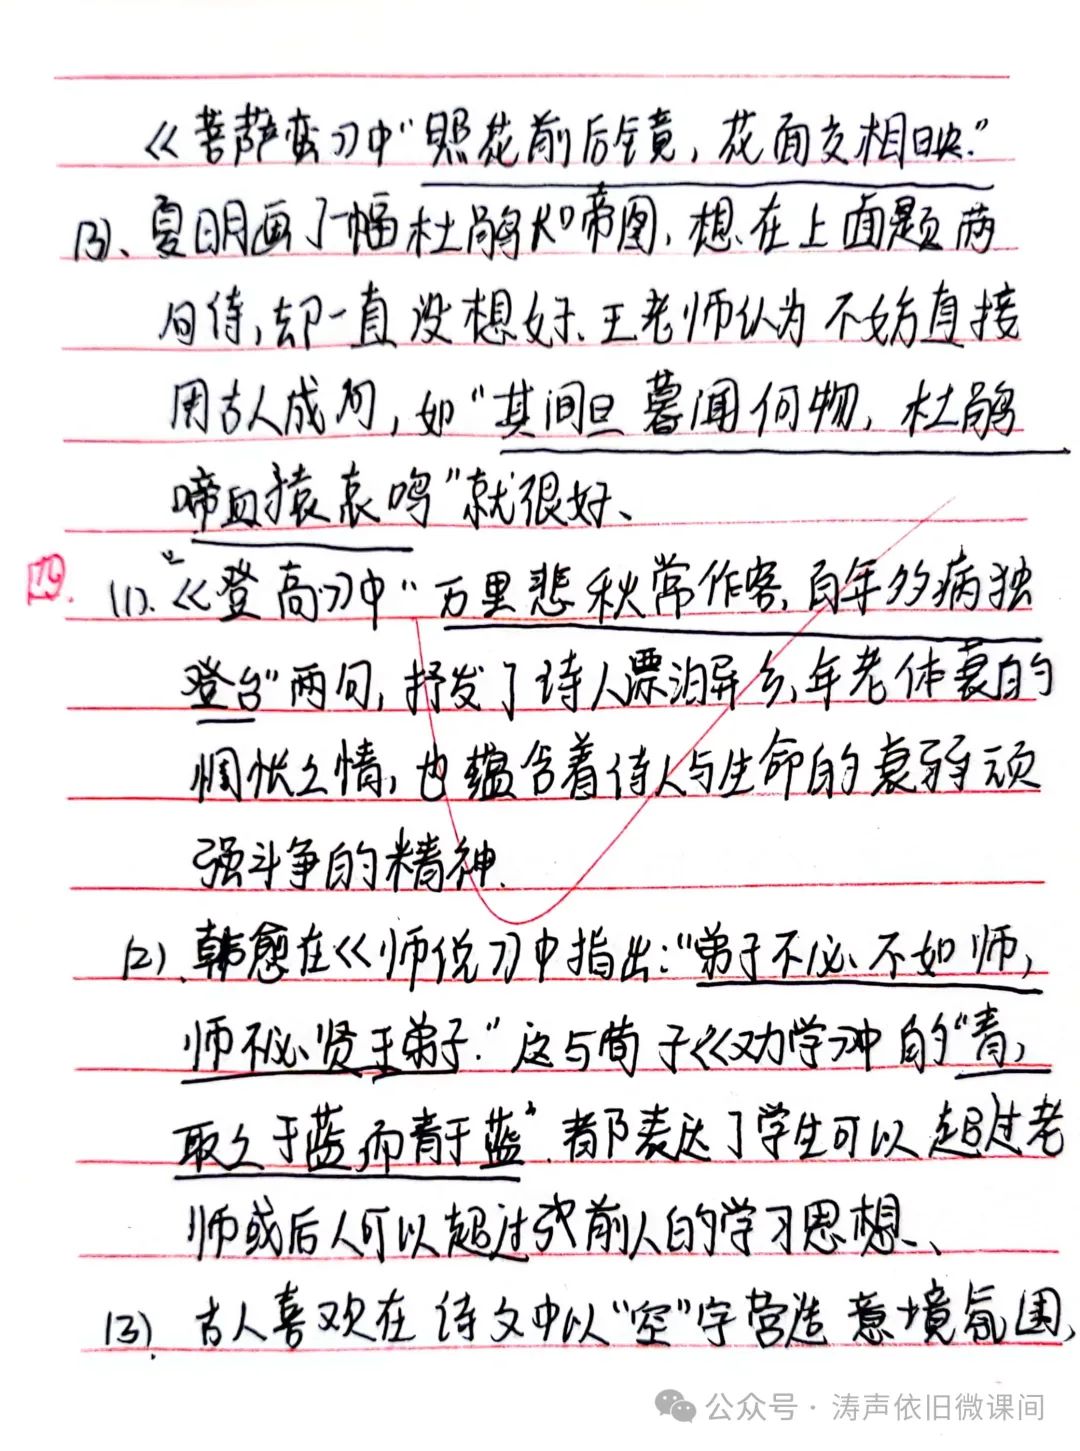 《菩萨蛮》中"照花前后镜，花面交相映."
(3)、夏明画了一幅杜鹃啼图，想在上面题两
句诗，却一直没想好、王老师认为不妨直接
用古人成句，如"其间旦暮闻何物，杜鹃
啼血猿哀鸣"就很好、
19. (1).《登高》中"万里悲秋常作客，百年多病独
登台"两句，抒发了诗人漂泊异乡、年老体衰的
惆怅之情，也蕴含着诗人与生命的衰弱顽
强斗争的精神.
(2)、韩愈在《师说》中指出："弟子不必不如师，
师不必贤于弟子."这与荀子《劝学》中的"青，
取之于蓝，而青于蓝"都表达了学生可以超过老
师或后人可以超过前人的学习思想、
(3)、古人喜欢在诗文中以"空"字营造意境氛围，
公众号·涛声依旧微课间